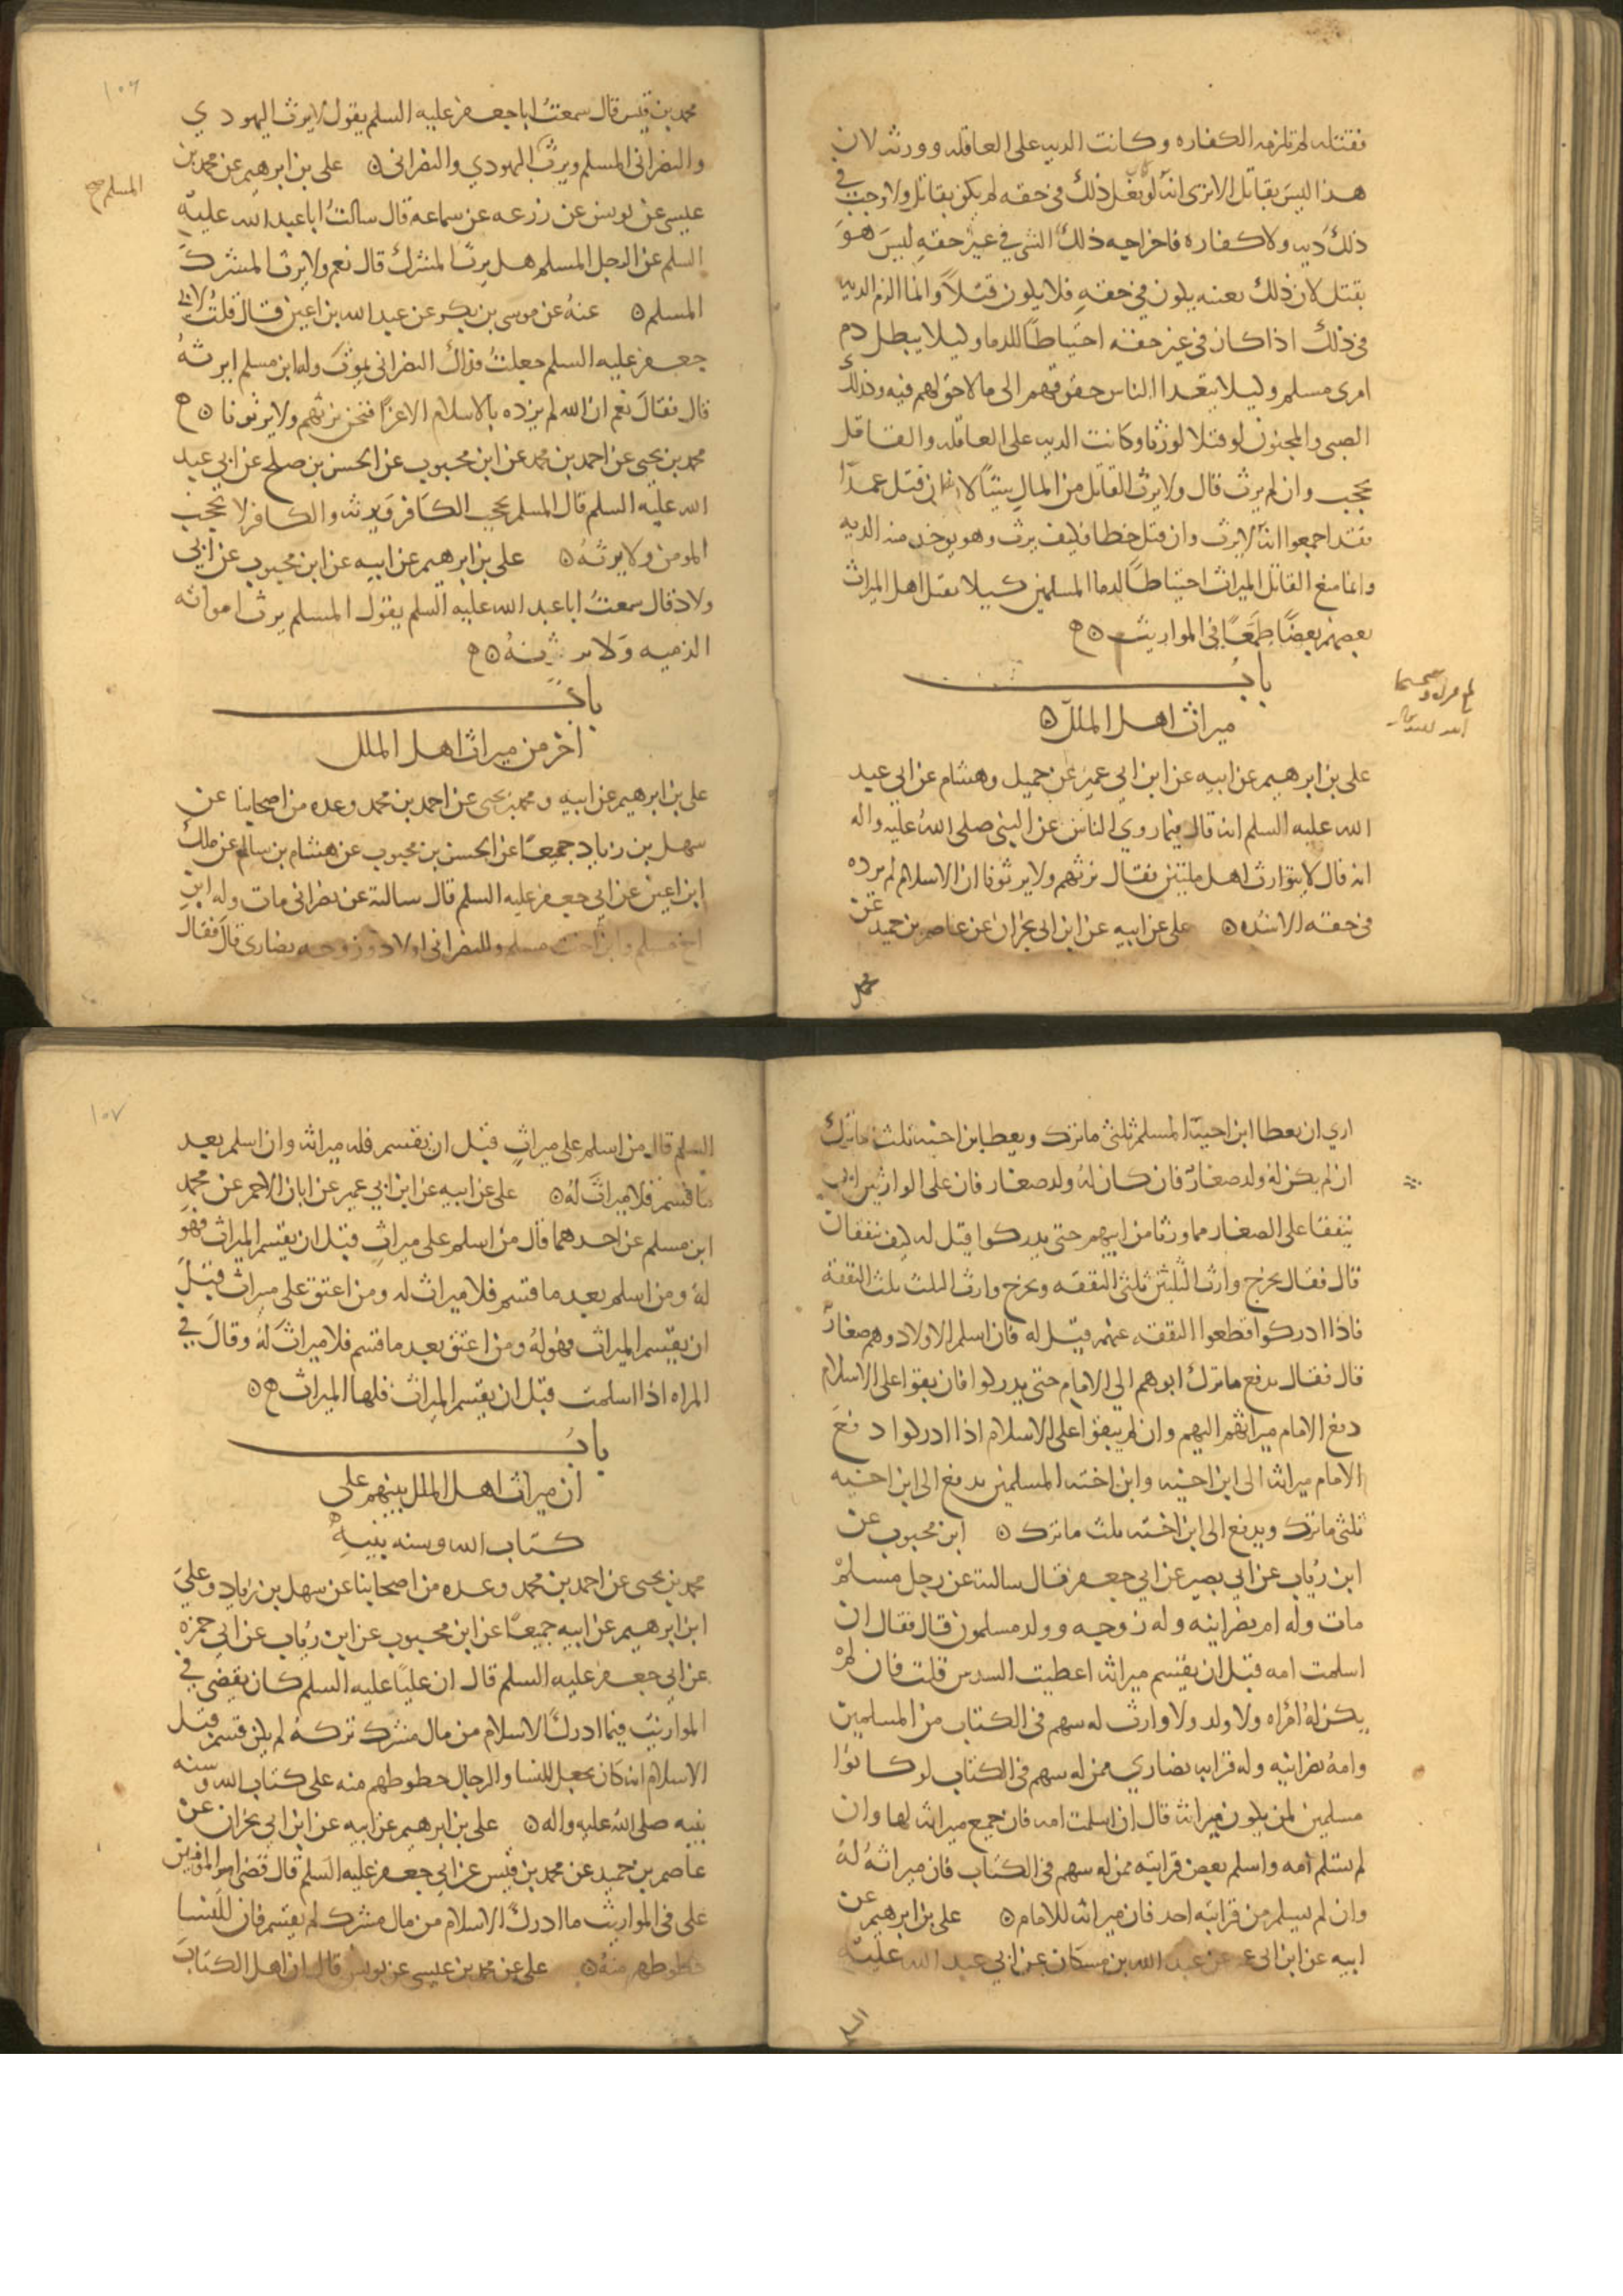 فقتله لم تلزمه الكفاره وكانت الديه على العاقله وورثه لان
هذا ليس بقاتل الا ترى انه لو فعل ذلك في حقه لم يكن بقاتل ولا وجب في
ذلك ديه ولا كفاره فاخراجه ذلك الشي في غير حقه ليس هو
بقتل لان ذلك بعينه يكون في حقه فلا يكون قتلا وانما الزم الديه
في ذلك اذا كان في غير حقه احتياطا للدما وليلا يبطل دم
امرى مسلم وليلا يتعدا الناس حقوقهم الى ما لا حق لهم فيه وكذلك
الصبي والمجنون لو قتلا لورثا وكانت الديه على العاقله والقاتل
يحجب وان لم يرث قال ولا يرث القاتل من المال شيئا لانه ان قتل عمدا
فقد اجمعوا انه لا يرث وان قتل خطا فكيف يرث وهو يوخذ منه الديه
وانما منع القاتل الميراث احتياطا لدما المسلمين كيلا يقتل اهل الميراث
بعضهم بعضا طمعا في المواريث
باب
ميراث اهل الملل
على بن ابرهيم عن ابيه عن ابن ابي عمير عن جميل وهشام عن ابي عبد
الله عليه السلم انه قال فيما روي الناس عن النبي صلى الله عليه واله
انه قال لا يتوارث اهل ملتين فقال نرثهم ولا يرثونا ان الاسلام لم يزده
في حقه الا شده على عن ابيه عن ابن ابي نجران عن عاصم بن حميد عن
محمد
١٠٦
محمد بن قيس قال سمعت ابا جعفر عليه السلم يقول لا يرث اليهودي
والنصراني المسلم ويرث اليهودي والنصراني على بن ابرهيم عن محمد بن
المسلم صح
عيسى عن يونس عن زرعه عن سماعه قال سالت ابا عبد الله عليه
السلم عن الرجل المسلم هل يرث المشرك قال نعم ولا يرث المشرك
المسلم عنه عن موسى بن بكر عن عبد الله بن اعين قال قلت لابي
جعفر عليه السلم جعلت فداك النصراني يموت وله ابن مسلم ايرثه
قال فقال نعم ان الله لم يزده بالاسلام الا عزا فنحن نرثهم ولا يرثونا
محمد بن يحيى عن احمد بن محمد عن ابن محبوب عن الحسن بن صلح عن ابي عبد
الله عليه السلم قال المسلم يحجب الكافر ويرثه والكافر لا يحجب
المومن ولا يرثه على بن ابرهيم عن ابيه عن ابن محبوب عن ابي
ولاد قال سمعت ابا عبد الله عليه السلم يقول المسلم يرث امراته
الذميه ولا ترثه
باب
اخر من ميراث اهل الملل
على بن ابرهيم عن ابيه ومحمد بن يحيى عن احمد بن محمد وعده من اصحابنا عن
سهل بن زياد جميعا عن الحسن بن محبوب عن هشام بن سالم عن ملك
ابن اعين عن ابي جعفر عليه السلم قال سالته عن نصراني مات وله ابن
اخ مسلم وابن اخت مسلم وللنصراني اولاد وزوجه نصارى قال فقال
ارى ان يعطا ابن اخيه المسلم ثلثي ما ترك ويعطا ابن اخته ثلث ما ترك
ان لم يكن له ولد صغار فان كان له ولد صغار فان على الوارثين ان
ينفقا على الصغار مما ورثا من ابيهم حتى يدركوا قيل له كيف ينفقان
قال فقال يخرج وارث الثلثين ثلثي النفقه ويخرج وارث الثلث ثلث النفقه
فاذا ادركوا قطعوا النفقه عنهم قيل له فان اسلم الاولاد وهم صغار
قال فقال يدفع ما ترك ابوهم الى الامام حتى يدركوا فان بقوا على الاسلام
دفع الامام ميراثهم اليهم وان لم يبقوا على الاسلام اذا ادركوا دفع
الامام ميراثه الى ابن اخيه وابن اخته المسلمين يدفع الى ابن اخيه
ثلثي ما ترك ويدفع الى ابن اخته ثلث ما ترك ابن محبوب عن
ابن رئاب عن ابي بصير عن ابي جعفر قال سالته عن رجل مسلم
مات وله ام نصرانيه وله زوجه وولد مسلمون قال فقال ان
اسلمت امه قبل ان يقسم ميراثه اعطيت السدس قلت فان لم
يكن له امراه ولا ولد ولا وارث له سهم في الكتاب من المسلمين
وامه نصرانيه وله قرابه نصارى ممن له سهم في الكتاب لو كانوا
مسلمين لمن يكون ميراثه قال ان اسلمت امه فان جميع ميراثه لها وان
لم تسلم امه واسلم بعض قرابته ممن له سهم في الكتاب فان ميراثه له
وان لم يسلم من قرابته احد فان ميراثه للامام على بن ابرهيم عن
ابيه عن ابن ابي عن عبد الله بن مسكان عن ابي عبد الله عليه
السلم
١٠٧
السلم قال من اسلم على ميراث قبل ان يقسم فله ميراثه وان اسلم بعد
ما قسم فلا ميراث له على عن ابيه عن ابن ابي عمير عن ابان الاحمر عن محمد
ابن مسلم عن احدهما قال من اسلم على ميراث قبل ان يقسم الميراث فهو
له ومن اسلم بعد ما قسم فلا ميراث له ومن اعتق على ميراث قبل
ان يقسم الميراث فهو له ومن اعتق بعد ما قسم فلا ميراث له وقال في
المراه اذا اسلمت قبل ان يقسم الميراث فلها الميراث
باب
ان ميراث اهل الملل بينهم على
كتاب الله وسنه نبيه
محمد بن يحيى عن احمد بن محمد وعده من اصحابنا عن سهل بن زياد وعلي
ابن ابرهيم عن ابيه جميعا عن ابن محبوب عن ابن رئاب عن ابي حمزه
عن ابي جعفر عليه السلم قال ان عليا عليه السلم كان يقضي في
المواريث فيما ادرك الاسلام من مال مشرك تركه لم يكن قسم قبل
الاسلام انه كان يجعل للنسا والرجال حظوظهم منه على كتاب الله وسنه
نبيه صلى الله عليه واله على بن ابرهيم عن ابيه عن ابن ابي نجران عن
عاصم بن حميد عن محمد بن قيس عن ابي جعفر عليه السلم قال قضى امير المومنين
على في المواريث ما ادرك الاسلام من مال مشرك لم يقسم فان للنسا
حظوظهم منه على عن محمد بن عيسى عن يونس قال ان اهل الكتاب